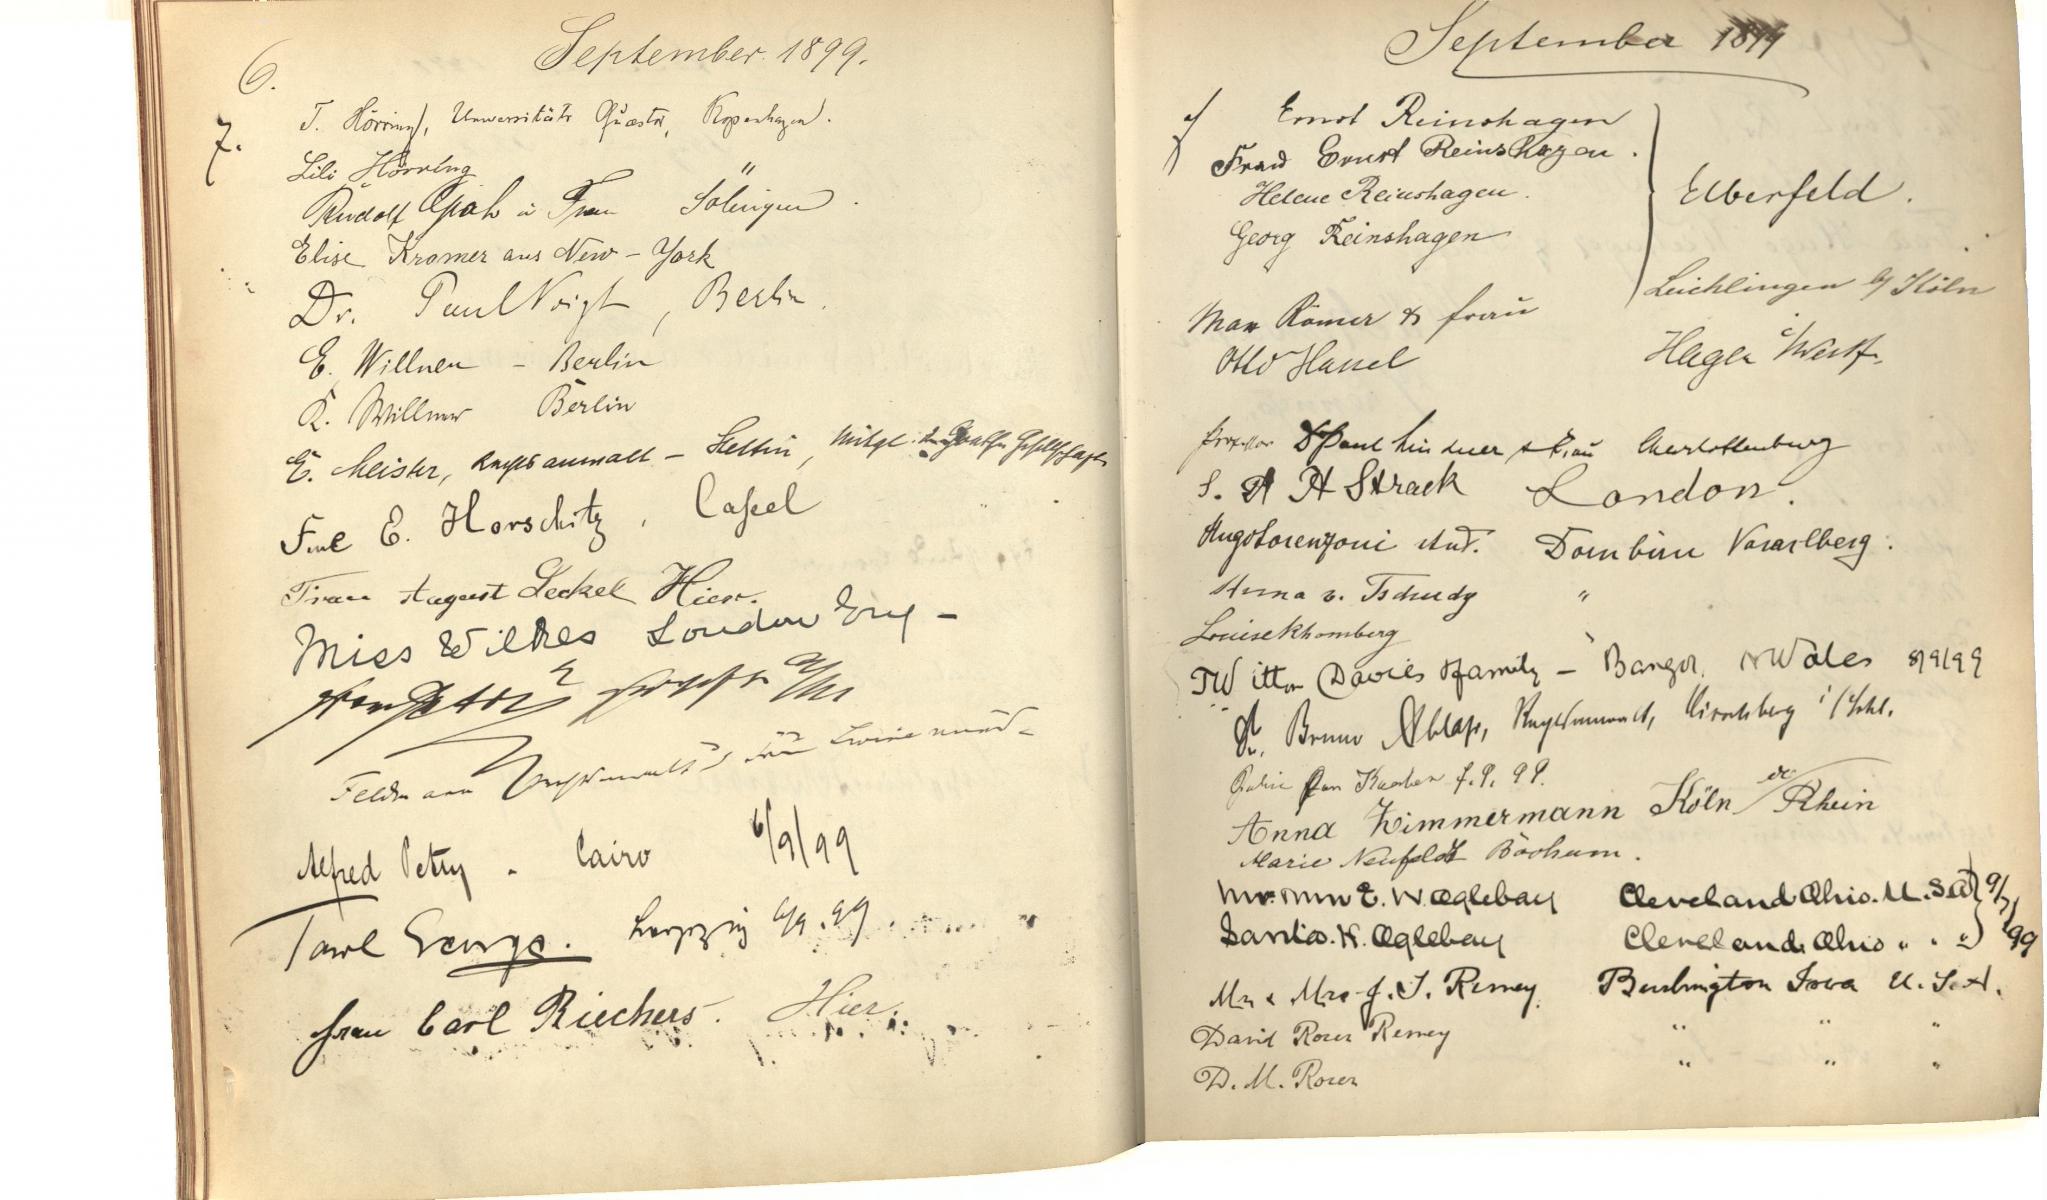 September 1899.
6.
7.
T. Hörring, Universitäts Quæstor, Kopenhagen.
Lili Hörring "
Rudolf u Frau Solingen.
Elise Kromer aus New-York
Dr. Paul Voigt, Berlin.
E. Willner - Berlin
K. Willner Berlin
E. Meister, Rechtsanwalt - Stettin, Mitgl. der Goethe Gesellschaft
E. Horschitz, Cassel
Frau August Hier.
Miss Wilkes London Eng -
Feldmann
Alfred Petry. Cairo 6/9/99
Leipzig 6/9.99.
Frau Carl Riechers. Hier.
September 1899
Ernst Reinshagen
Frau Ernst Reinshagen.
Helene Reinshagen.
Georg Reinshagen
Elberfeld.
Leichlingen b/Köln
Max Römer & Frau
Otto Hassel Hagen i/Westf.
Professor Dr Paul Lindner & Frau Charlottenburg
S. A H Strack London.
Hugo Lorenzoni stud. Dornbirn Vorarlberg.
Anna v. Tschudy "
Louise Rhomberg
T Witton Davies & family - Bangor. N Wales 8/9/99
Dr. Bruno Ablaß, Rechtsanwalt, Hirschberg i/Schl.
7.9.99.
Anna Zimmermann Köln a/Rhein
Marie Neufeldt Bochum.
Mr. Mrs E. W. Oglebay Cleveland Ohio. U.S.A 9/7/99
Sarita. H. Oglebay Cleveland. Ohio " . "
Mr & Mrs J. T. Remey. Burlington Iowa U.S.A.
David Rorer Remey " " "
D. M. Rorer " " "